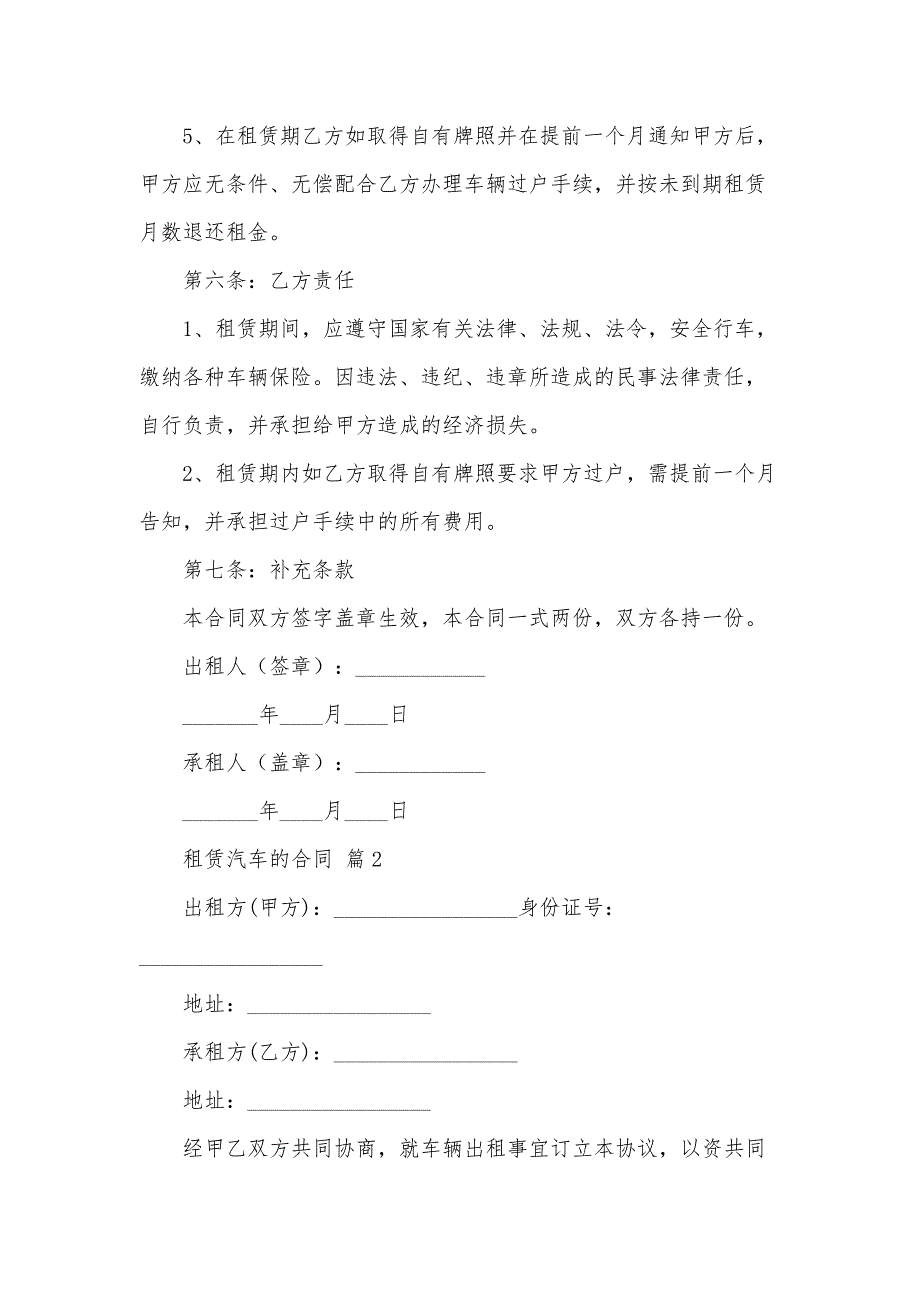 5、在租赁期乙方如取得自有牌照并在提前一个月通知甲方后，
甲方应无条件、无偿配合乙方办理车辆过户手续，并按未到期租赁
月数退还租金。
第六条：乙方责任
1、租赁期间，应遵守国家有关法律、法规、法令，安全行车，
缴纳各种车辆保险。因违法、违纪、违章所造成的民事法律责任，
自行负责，并承担给甲方造成的经济损失。
2、租赁期内如乙方取得自有牌照要求甲方过户，需提前一个月
告知，并承担过户手续中的所有费用。
第七条：补充条款
本合同双方签字盖章生效，本合同一式两份，双方各持一份。
出租人（签章）：____________
_______年____月____日
承租人（盖章）：____________
_______年____月____日
租赁汽车的合同 篇2
出租方(甲方)：_________________身份证号：
_________________
地址：_________________
承租方(乙方)：_________________
地址：_________________
经甲乙双方共同协商，就车辆出租事宜订立本协议，以资共同